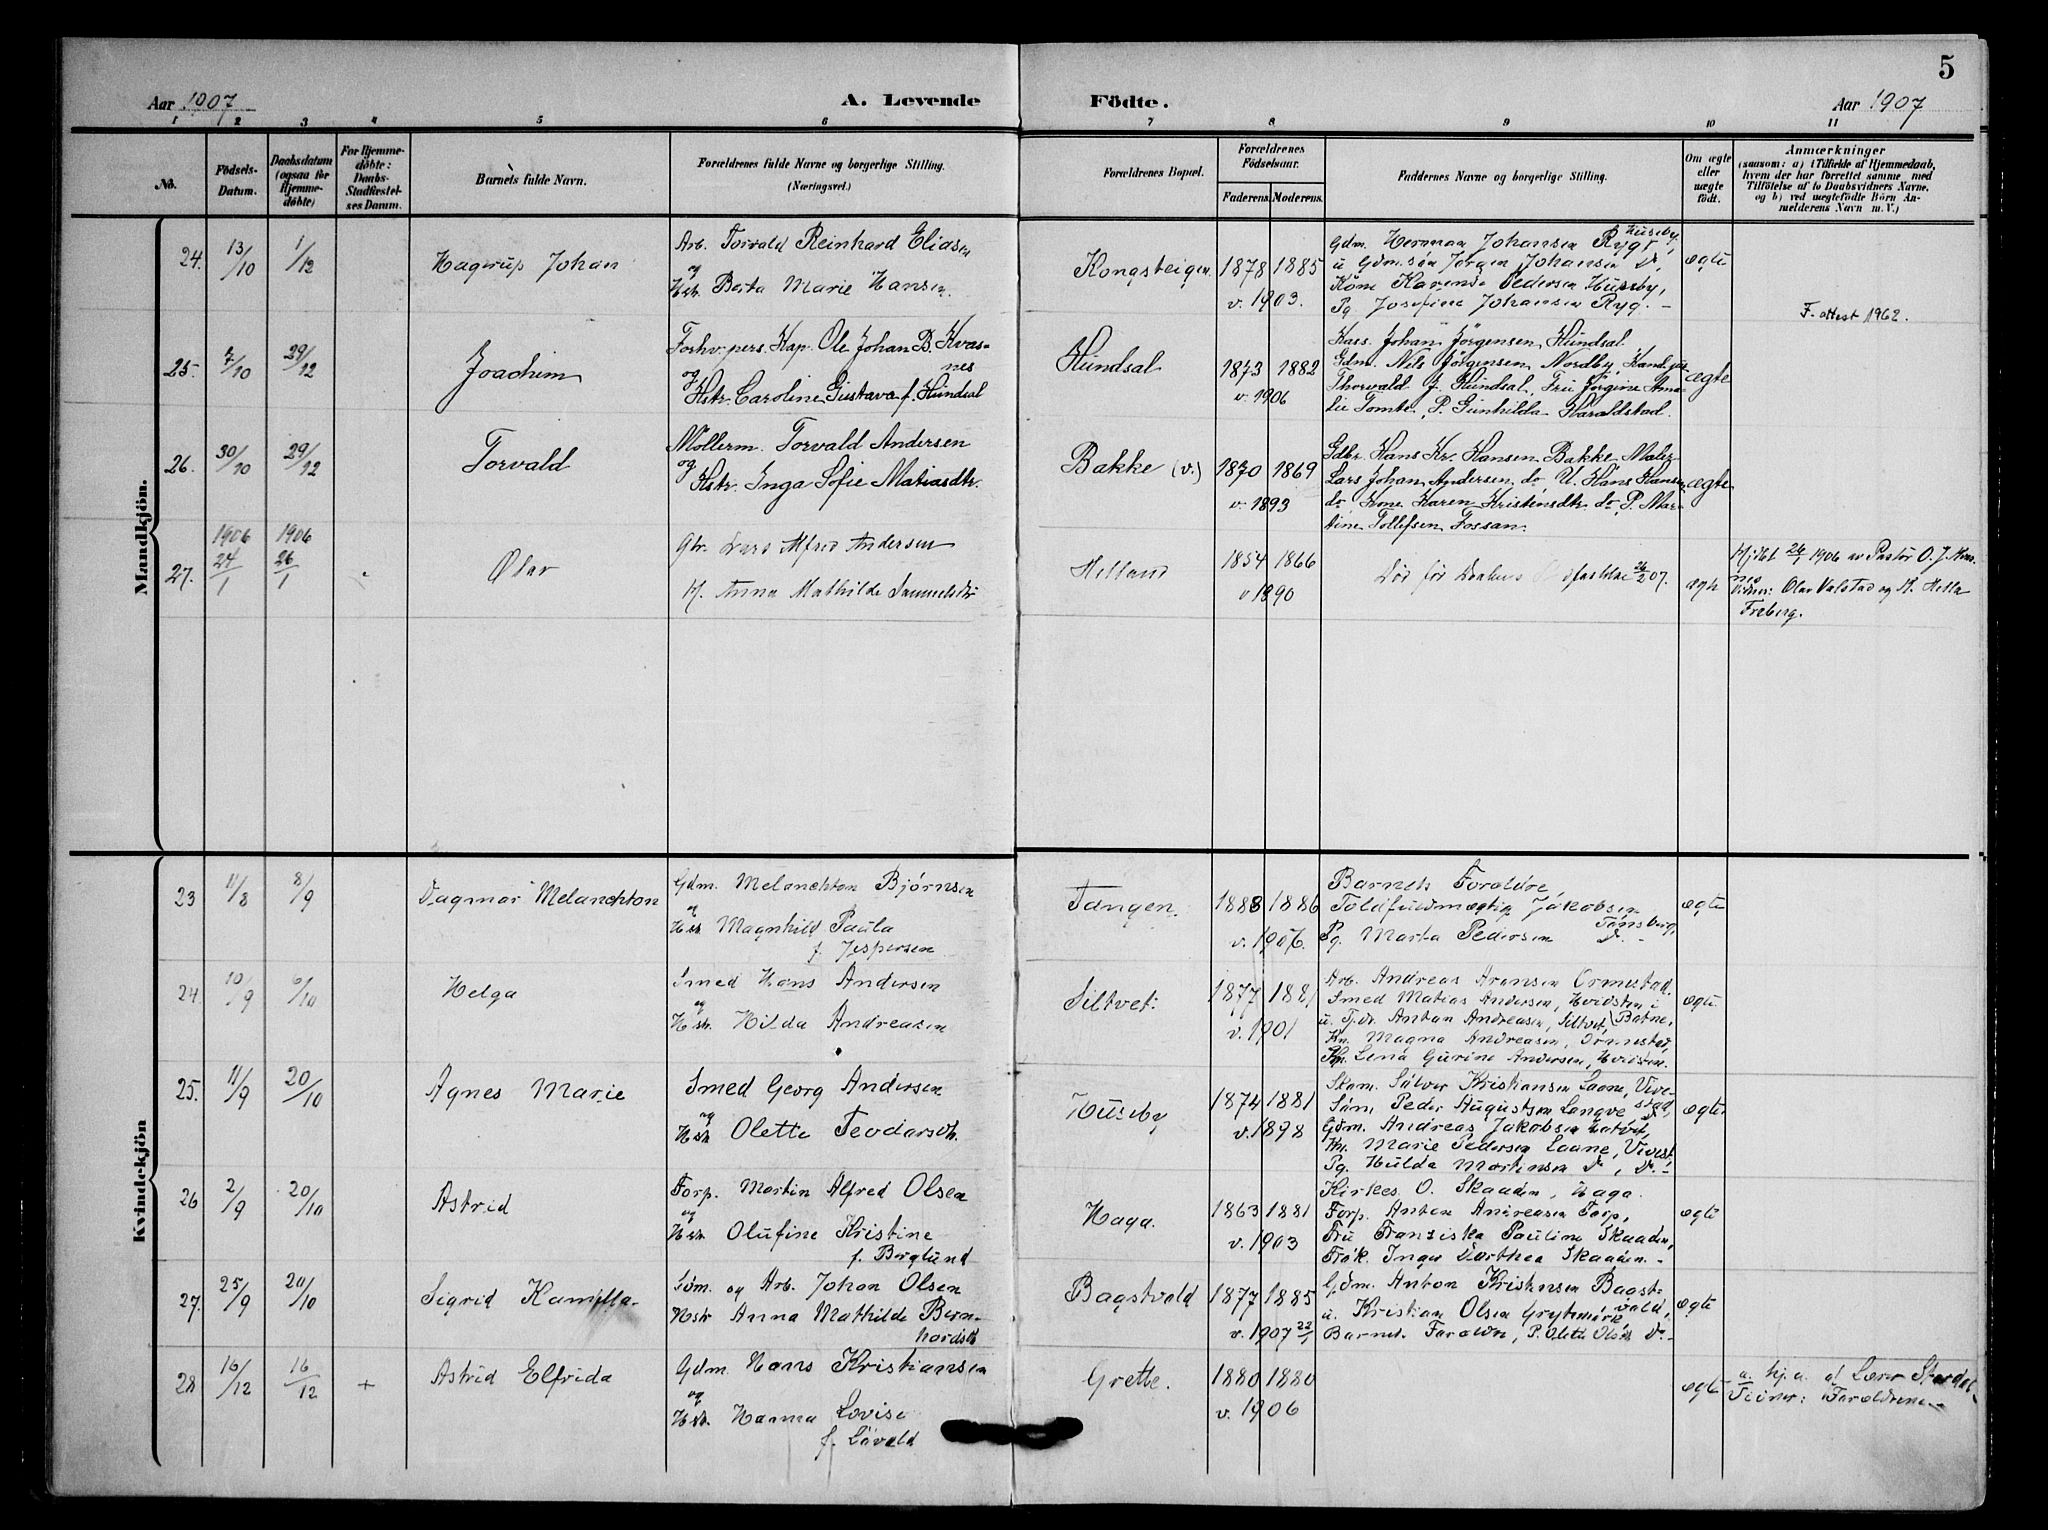 5
Aar 1907
A. Levende
Födte.
Aar 1907
1 2 3 4 5 6 7 8 9 10 11
No.
Födsels-
Datum.
Daabsdatum
(ogsaa for
Hjemme-
döbte)
For Hjemme-
döbte:
Daabs-
Stadfæstel-
ses Datum.
Barnets fulde Navn.
Forældrenes fulde Navne og borgerlige Stilling.
(Næringsvei.)
Forældrenes Bopæl.
Forældrenes
Födselsaar.
Faderens.
Moderens.
Faddernes Navne og borgerlige Stilling.
Om ægte
eller
uægte
födt.
Anmærkninger
(saasom: a) i Tilfælde af Hjemmedaab,
hvem der har forrettet samme, med
Tilföielse af to Daabsvidners Navne,
og b) ved uægtefödte Börn An-
melderens Navn m. V.)
Mandkjön.
24. 13/10 1/12 Hagerup Johan
Arb. Torvald Reinhard Eliasen
og
Hstr. Berta Marie Hansen.
Kongsteigen. 1878 1885
v. 1903.
Gdm. Herman Johansen Rygt, Huseby,
u Gdm.søn Jørgen Johansen Do,
Kone Karende Pedersen Huseby,
Pg Josefine Johansen Ryg. -
ægte
F. attest 1962.
25. 7/10 29/12 Joachim
Forhv. pers. Kap. Ole Johan B. Kvas-
nes
og
Hstr. Caroline Gustava f. Hundsal
Hundsal 1873 1882
v. 1906
Kass. Johan Jörgensen Hundsal
Gdm. Nils Jörgensen Nordby, Kand. jur
Thorvald J. Hundsal, Fru Jörgine Ama-
lie Tomte, P. Gunhilda Haraldstad.
ægte
26. 30/10 29/12 Torvald
Möllerm. Torvald Andersen
og
Hstr. Inga Sofie Matiasdtr.
Bakke (v.) 1870 1869
v. 1893
Gdbr. Hans Kr. Hansen Bakke Maler
Lars Johan Andersen do U. Hans Hansen
do Kone Karen Kristensdtr. do, P. Mar-
tine Tollefsen Fossan.
ægte
27. 1906 24/1 1906 26/1 Olav
Gbr. Lars Alfred Andersen
H. Anna Mathilde Samuelsdtr
Helland 1854 1866
v 1890
Död för Daabens 26/2 07.
ægte
Hjdbt 26/1 1906 av Pastor O. J. Kvas-
nes
Vidner: Olav Valstad og H. Hella
Freberg.
Kvindekjön
23 11/8 8/9 Dagmar Melanchton
Gdm. Melanchton Bjørnsen
og
Hstr Magnhild Paula
f. Jespersen
Tangen. 1883 1886
v. 1906.
Barnets Foraldre,
Toldfuldmægtig Jakobsen
Tønsberg,
Pg. Marta Pedersen Do -
ægte
24. 10/9 6/10 Helga
Smed Hans Andersen
og
Hstr. Hilda Andreasen
Siltvet. 1877 1881
v. 1901
Arb. Andreas Aronsen Ormestad.
Smed Matias Andersen, Hvidsten i
u. Tj.dr. Anton Andreasen, Siltvet, Botne,
Kn. Magna Andreasen, Ormestad,
Kn. Lena Gurine Andersen, Hvidsten.
ægte
25. 11/9 20/10 Agnes Marie
Smed Georg Andersen
og
Hstr Olette Teodorsdtr.
Huseby 1874 1881
v. 1898
Skom. Sølver Kristiansen Laane, Vive-
stad,
Søm. Peder Augustsen Langve Do
Gdm. Andreas Jakobsen
Kn. Marie Pedersen Laane, Vivest.
Pg. Hulda Martinsen Do, Do.-
ægte
26 2/9 20/10 Astrid
Forp. Martin Alfred Olsen
og
Hstr. Olufine Kristine
f. Berglund
Haga. 1863 1881
v. 1903
Kirkes. O. Skaaden, Haga.
Forp. Anton Andreasen Torp,
Fru Franziska Pauline Skaaden,
Frøk. Inga Dorthea Skaaden. -
ægte
27. 25/9 20/10 Sigrid Kamilla.
Søm. og Arb. Johan Olsen
Hstr Anna Mathilde Bern-
hardsdtr
Bagstvold 1877 1885
v. 1907 22/1
Gdm. Anton Kristiansen Bagst-
vold,
u. Kristian Olsen Grytemire,
Barnets Foraldre, P. Olette Olsen Do-
ægte
28 16/12 16/12 + Astrid Elfrida
Gdm. Hans Kristiansen
og
Hstr. Hanna Lovise
f. Løvald
Grette. 1880 1880
v. 1906
ægte
a. hj.d. af Lærer
Vidner: Foraldrene